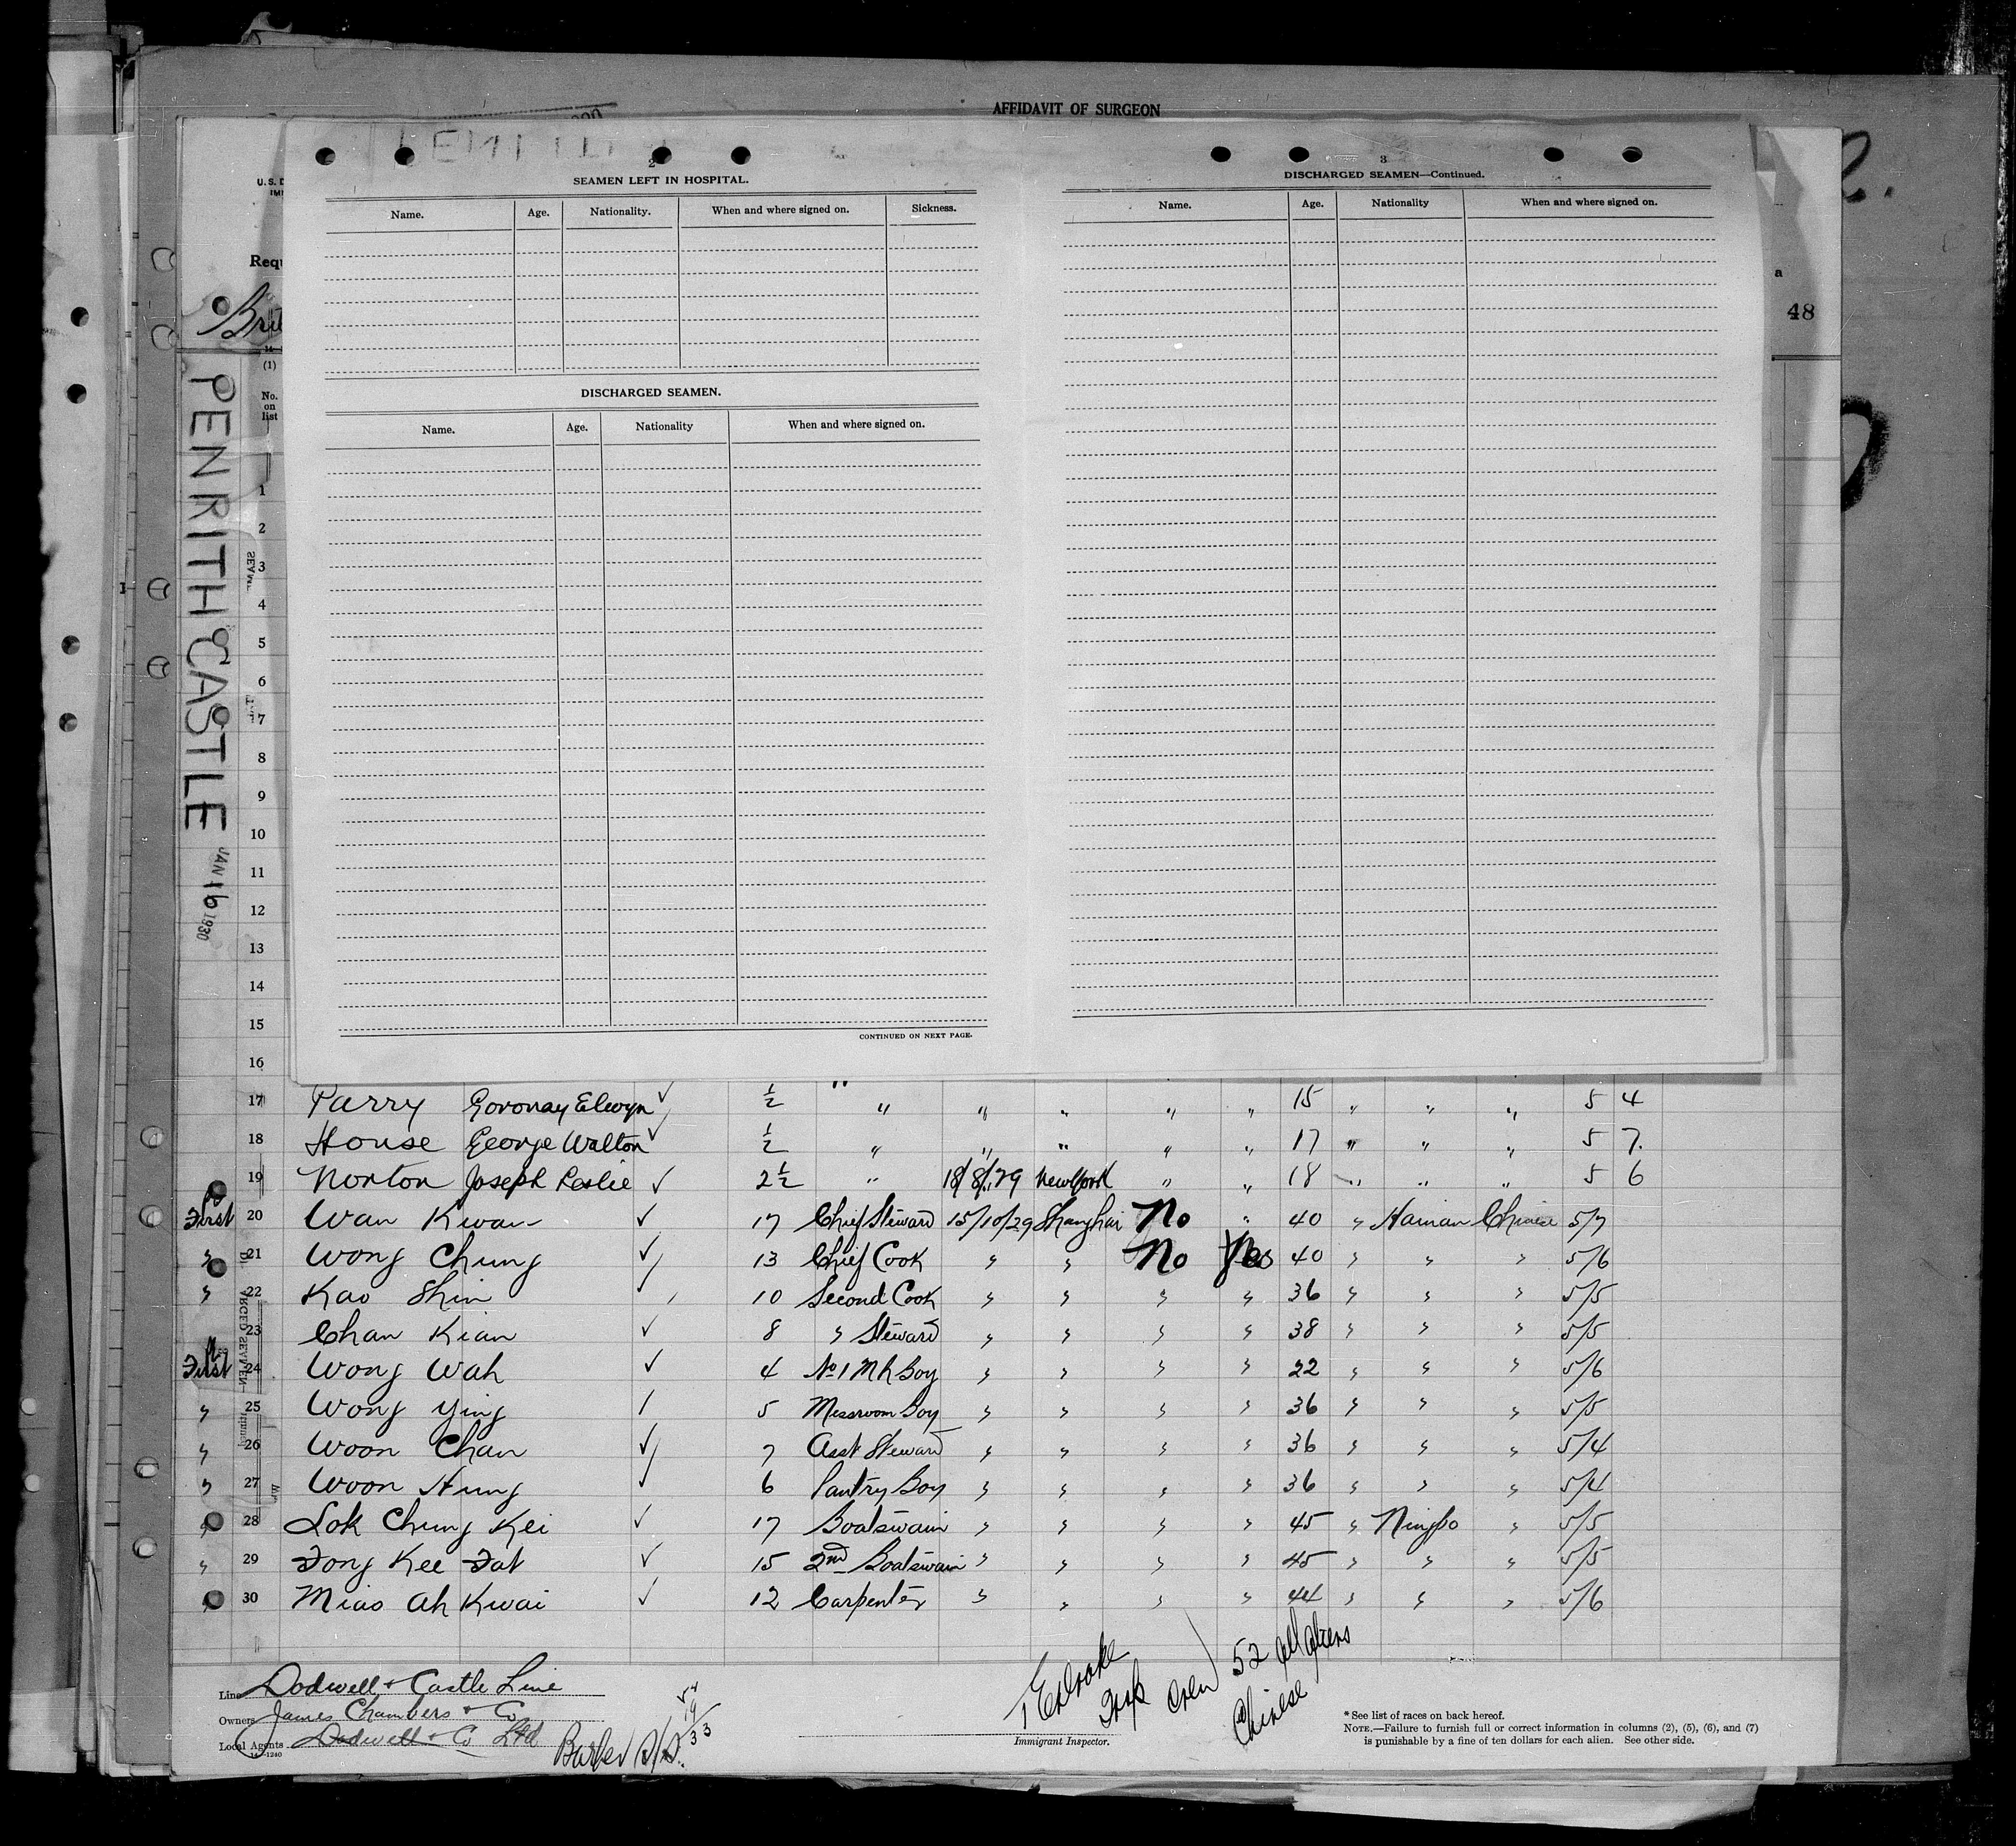 AFFIDAVIT OF SURGEON
2
SEAMEN LEFT IN HOSPITAL.
Name. Age. Nationality. When and where signed on. Sickness.
DISCHARGED SEAMEN.
Name. Age. Nationality When and where signed on.
CONTINUED ON NEXT PAGE.
3
DISCHARGED SEAMEN—Continued.
Name. Age. Nationality When and where signed on.
U. S. D
Requ
Brit
(1)
No. on list
a
48
PENRITH CASTLE JAN 16 1930
1
2
3
4
5
6
7
8
9
10
11
12
13
14
15
16
17 Parry Goronay Elwyn ✓ ½ " " " " " 15 " " " 5 4
18 House George Walton ✓ ½ " " " " " 17 " " " 5 7.
19 Norton Joseph Leslie ✓ 2½ " 18/8/29 New York " " 18 " " " 5 6
First 20 Wan Kwan ✓ 17 Chief Steward 15/10/29 Shanghai No " 40 " Hainan Chinese 5/7
" 21 Wong Chung ✓ 13 Chief Cook " " No Yes 40 " " " 5/6
" 22 Kao Shin ✓ 10 Second Cook " " " " 36 " " " 5/5
23 Chan Kian ✓ 8 " Steward " " " " 38 " " " 5/5
First 24 Wong Wah ✓ 4 No 1 M R Boy " " " " 22 " " " 5/6
" 25 Wong Ying / 5 Messroom Boy " " " " 36 " " " 5/5
" 26 Woon Chan ✓ 7 Asst Steward " " " " 36 " " " 5/4
" 27 Woon Hung ✓ 6 Pantry Boy " " " " 36 " " " 5/4
" 28 Lok Chung Kei ✓ 17 Boatswain " " " " 45 " Ningpo " 5/5
" 29 Fong Kee Fat ✓ 15 2nd Boatswain " " " " 45 " " " 5/5
" 30 Miao Ah Kwai ✓ 12 Carpenter " " " " 44 " " " 5/6
Line Dodwell & Castle Line
Owners James Chambers & Co
Local Agents Dodwell & Co Ltd
14—1240
Barber S/S.
19
33
crew 52 all aliens
Chinese
Immigrant Inspector.
* See list of races on back hereof.
NOTE.—Failure to furnish full or correct information in columns (2), (5), (6), and (7)
is punishable by a fine of ten dollars for each alien. See other side.